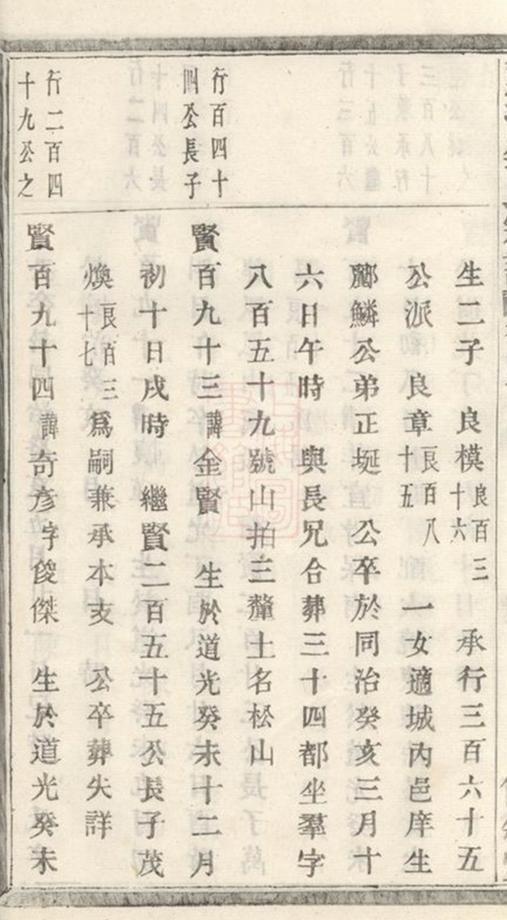 生二子 良模良百三十六 承行三百六十五
公派 良章良百八十五 一女適城內邑庠生
酈鱗公弟正埏 公卒於同治癸亥三月十
六日午時 與長兄合葬三十四都坐羣字
八百五十九號山拍三釐土名松山
行百四十四公長子
賢百九十三諱金賢 生於道光癸未十二月
初十日戌時 繼賢二百五十五公長子茂
煥良百三十七爲嗣兼承本支 公卒葬失詳
行二百四十九公之
賢百九十四諱奇彥字俊傑 生於道光癸未